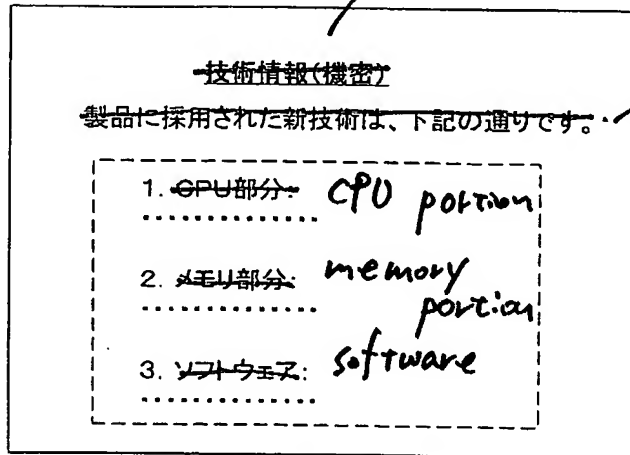 技術情報(機密)
製品に採用された新技術は、下記の通りです。
1. CPU部分: CPU portion
..............
2. メモリ部分: memory portion
..............
3. ソフトウェア: software
..............